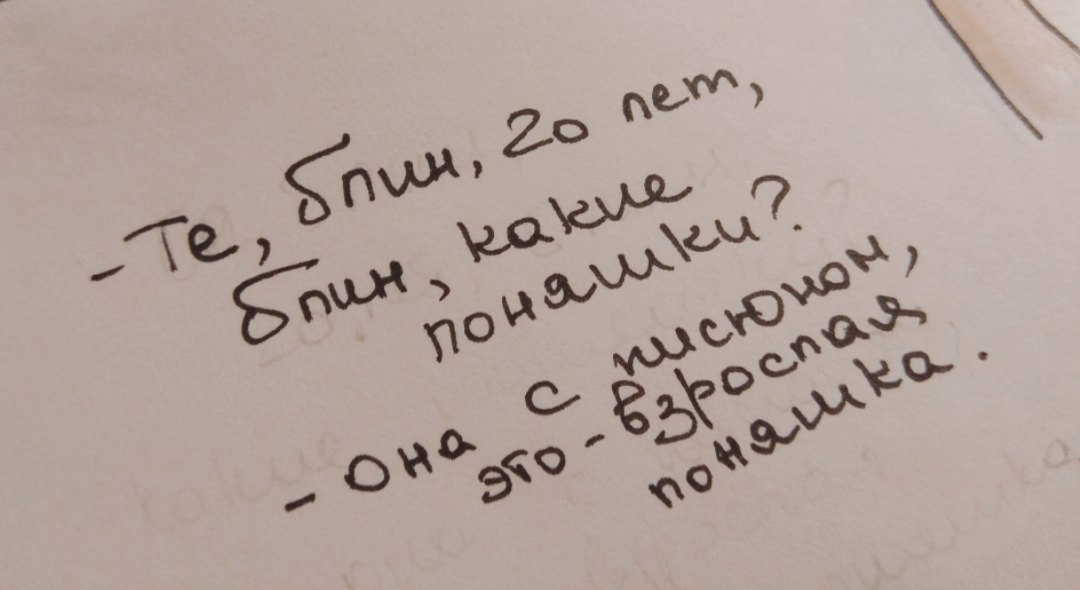 - Те, блин, 20 лет,
блин, какие
поняшки?
- Она с писюном,
это - взрослая
поняшка.